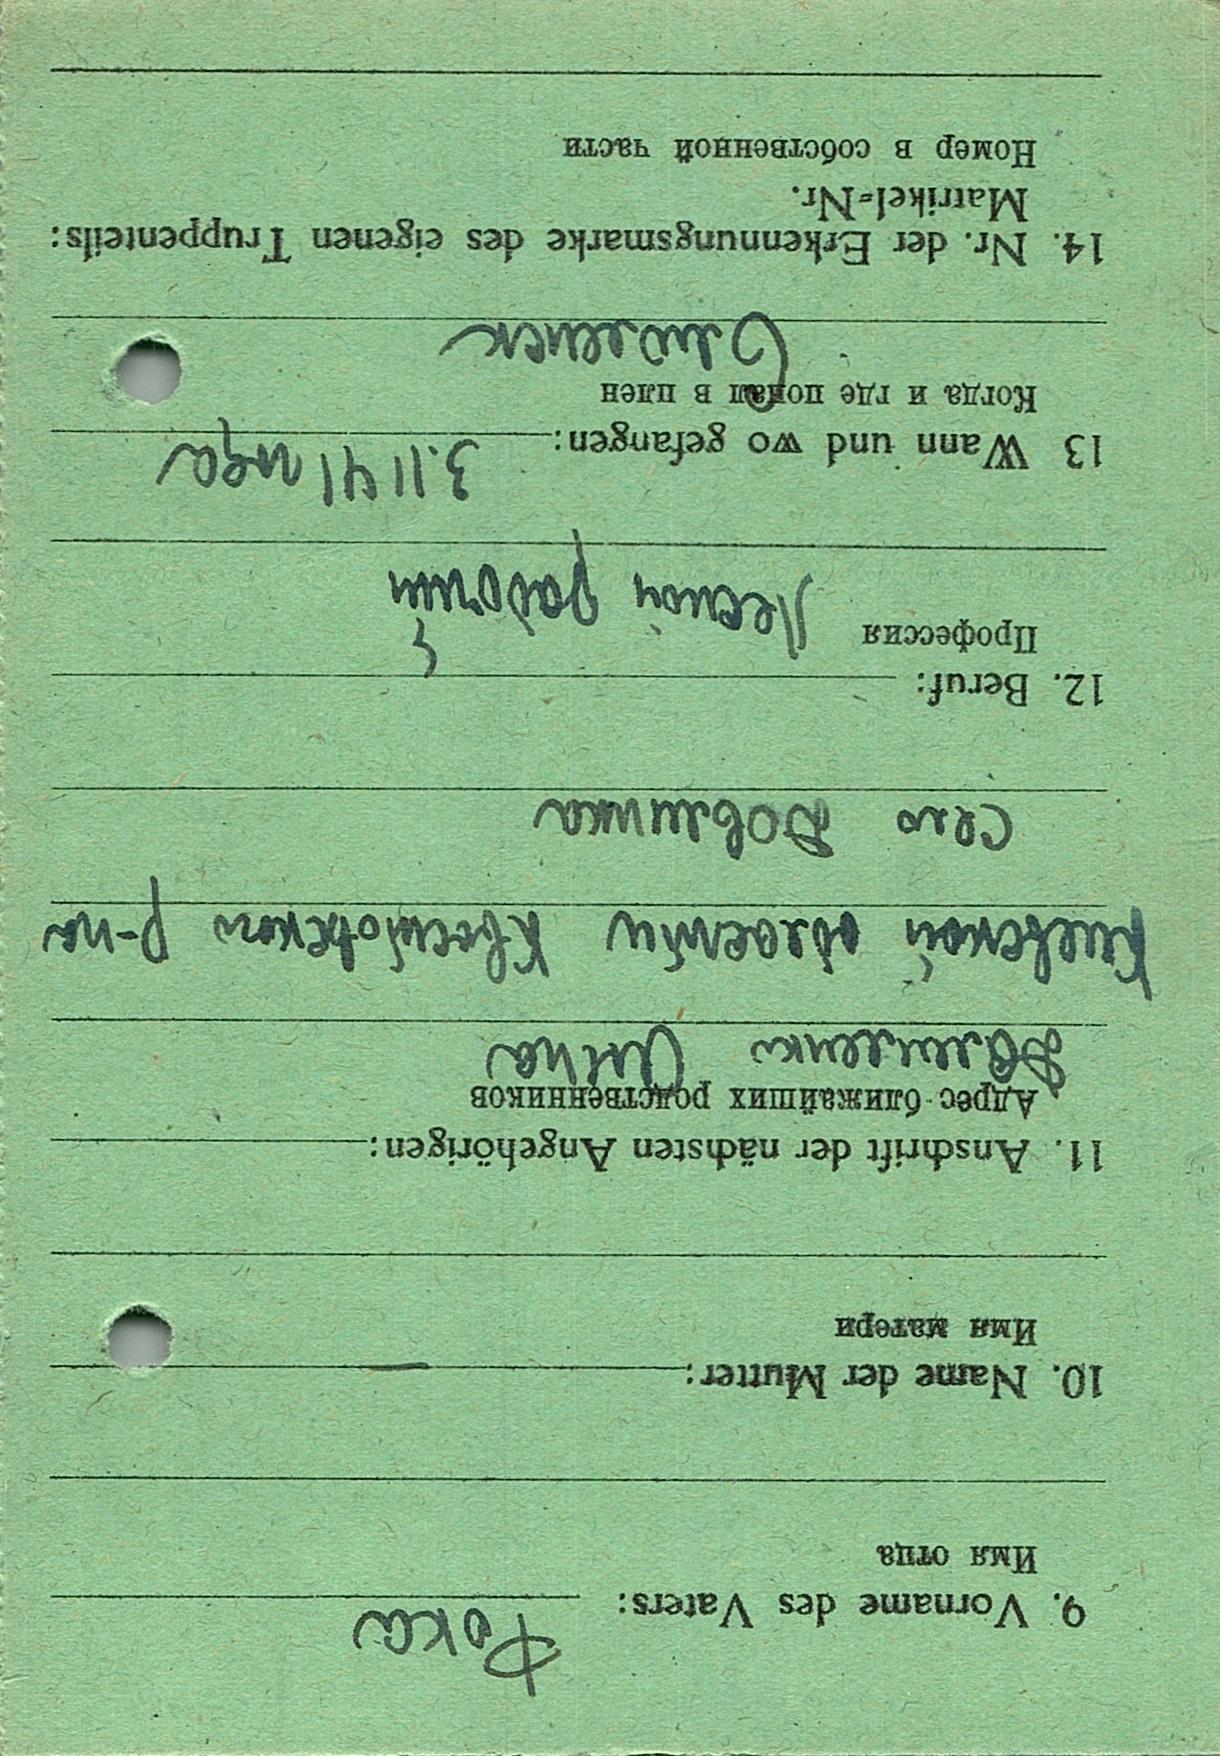 9. Vorname des Vaters: Фока
Имя отца
10. Name der Mutter: —
Имя матери
11. Anschrift der nächsten Angehörigen:
Адрес ближайших родственников
Анна
Киевской области р-на
село Довлинка
12. Beruf:
Профессия Лесной рабочий
13 Wann und wo gefangen: 3.11 41 года
Когда и где попал в плен
14. Nr. der Erkennungsmarke des eigenen Truppenteils:
Matrikel=Nr.
Номер в собственной части